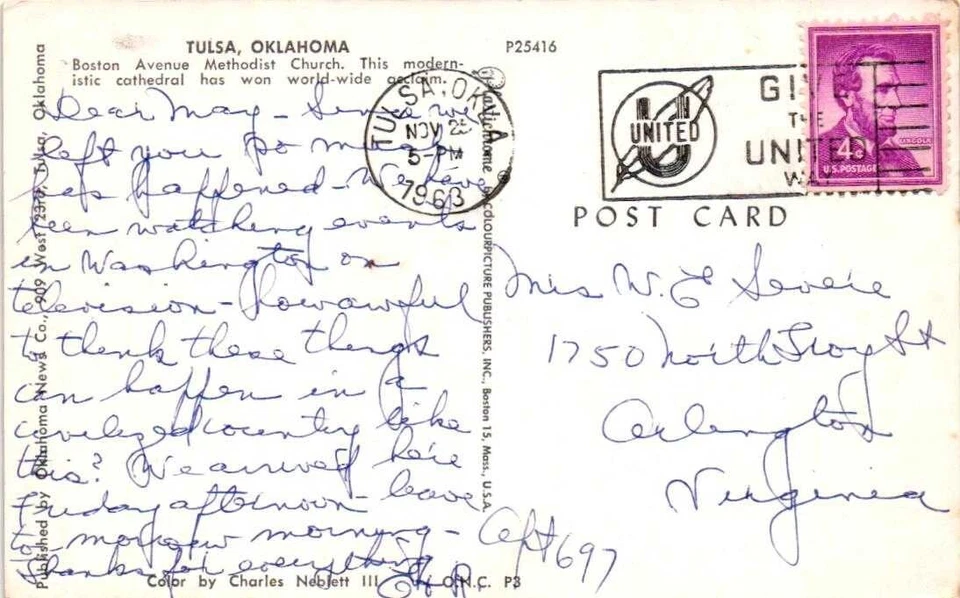 TULSA, OKLAHOMA
P25416
Boston Avenue Methodist Church. This modern-
istic cathedral has won world-wide acclaim.
Dear May - Since we
left you so much
has happened - We have
been watching events
in Washington on
television - how awful
to think these things
can happen in a
civilized country like
this? We arrived here
Friday afternoon - leave
to-morrow morning -
thanks for everything
Color by Charles Neblett III
O.N.C. P3
Published by Oklahoma News Co., 909 West 23rd, Tulsa, Oklahoma
Plastichrome ® COLOURPICTURE PUBLISHERS, INC., Boston 15, Mass., U.S.A.
TULSA, OKLA
NOV
5-PM
1963
UNITED
GIVE
THE
UNITED
WAY
LINCOLN
4¢
U.S. POSTAGE
POST CARD
Mrs W. E
1750 North Troy St
Arlington
Virginia
Apt 697